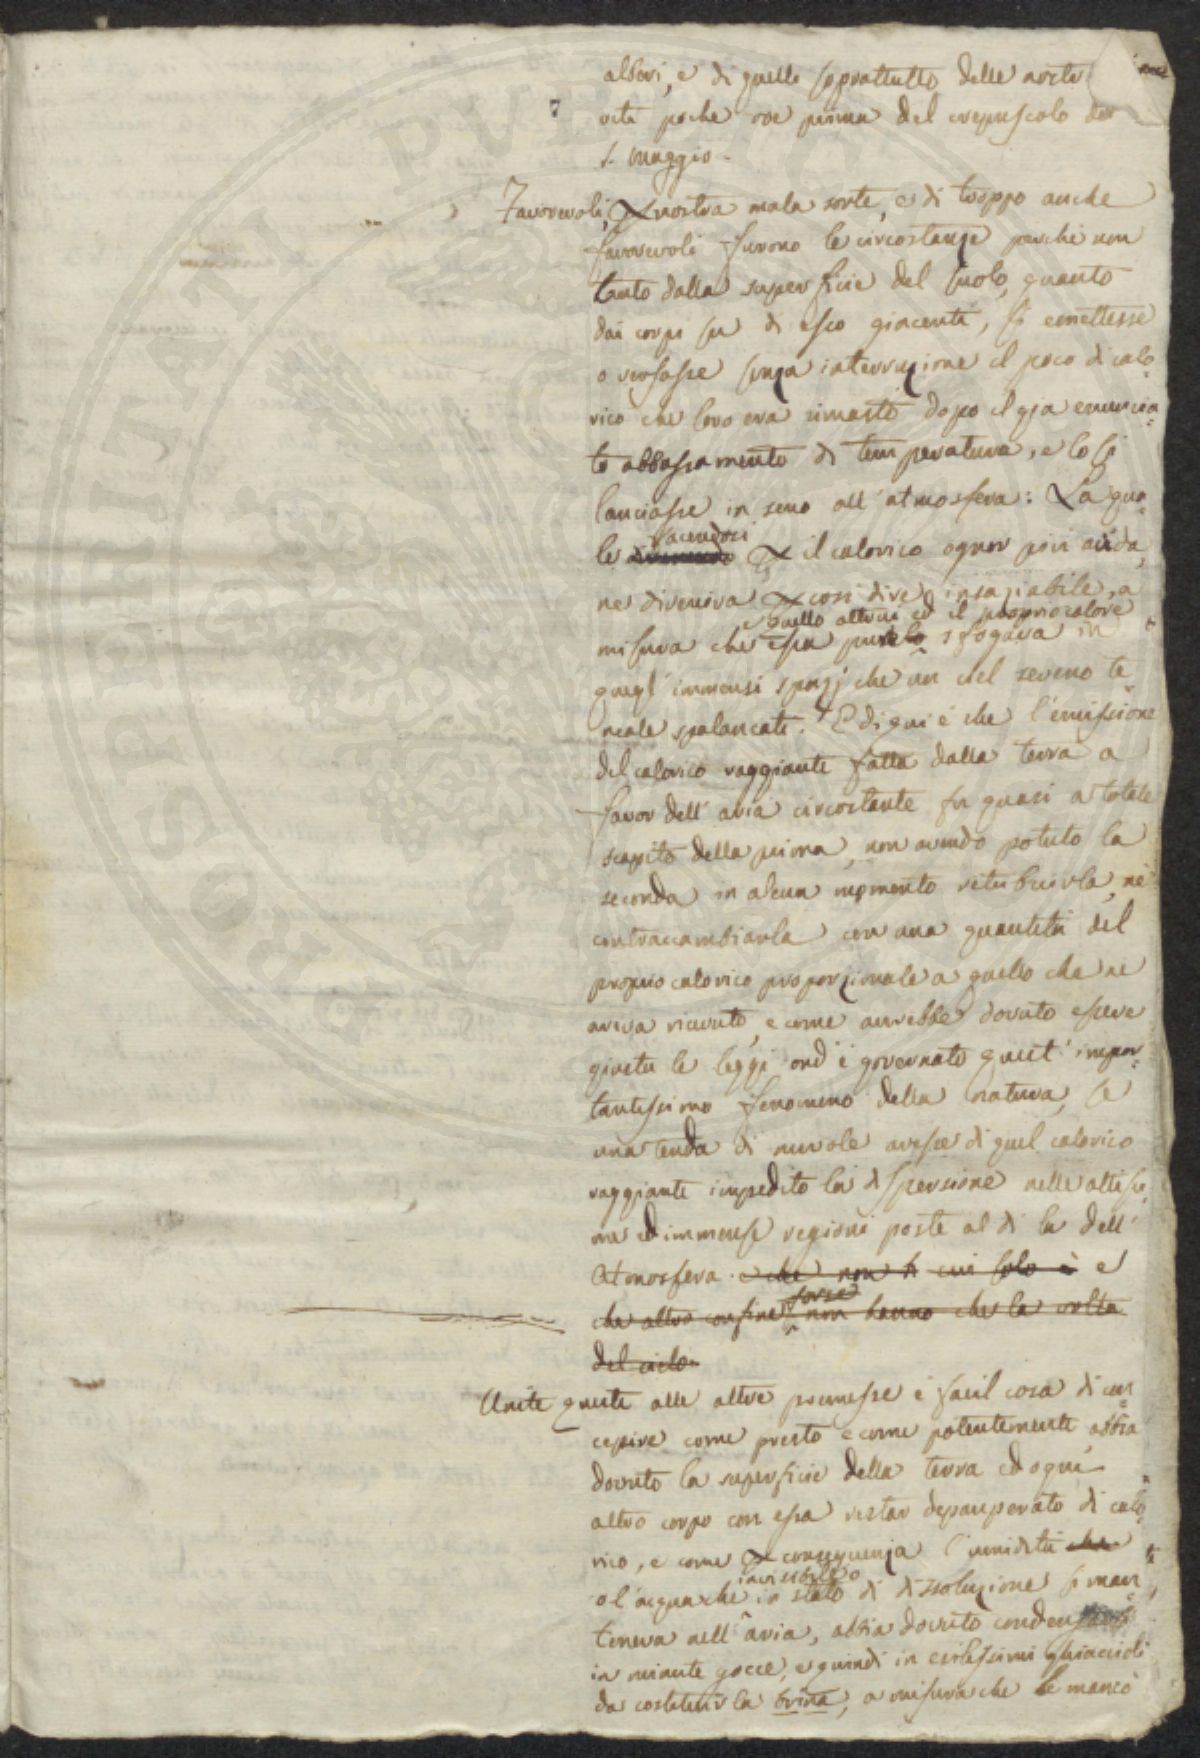 alberi, e di quelle soprattutto delle nostre
7
viti poche ore prima del crepuscolo del
1. Maggio.
Favorevoli, per nostra mala sorte, e di troppo anche
favorevoli furono le circostanze perchè non
tanto dalla superficie del suolo, quanto
dai corpi su di esso giacenti, si emettesse
o versasse senza interruzione il poco di calo=
rico che loro era rimasto dopo il già enuncia=
to abbassamento di temperatura, e lo si
lanciasse in seno all'atmosfera: La qua=
facendosi
le divenendo per il calorico ognor più avida,
ne diveniva per così dire insaziabile, a
e quello altrui ed il proprio calore
misura che essa pure lo sfogava in
quegl'immensi spazj che un ciel sereno te=
neale spalancati. E di qui è che l'emissione
del calorico raggiante fatta dalla terra a
favor dell'aria circostante fu quasi a totale
scapito della prima, non avendo potuto la
seconda in alcun momento retribuirla, nè
contraccambiarla con una quantità del
proprio calorico proporzionale a quello che ne
aveva ricevuto, e come avrebbe dovuto essere
giusta le leggi ond'è governato quest'impor=
tantissimo fenomeno della natura, se
una tenda di nuvole avesse di quel calorico
raggiante impedito la dispersione nelle altissi=
me ed immense regioni poste al di la dell'
Atmosfera. e che non h cui solo è e
forse
che altro confine non hanno che la volta
del cielo.
Unite queste alle altre premesse è facil cosa di con=
cepire come presto e come potentemente abbia
dovuto la superficie della terra ed ogni
altro corpo con essa restar depauperato di calo=
rico, e come per conseguenza l'umidità che
invisibile
o l'acqua che in stato di dissoluzione si man=
teneva nell'aria, abbia dovuto condensarsi
in minute gocce, e quindi in esilissimi ghiaccioli
da costituir la brina, a misura che le mancò